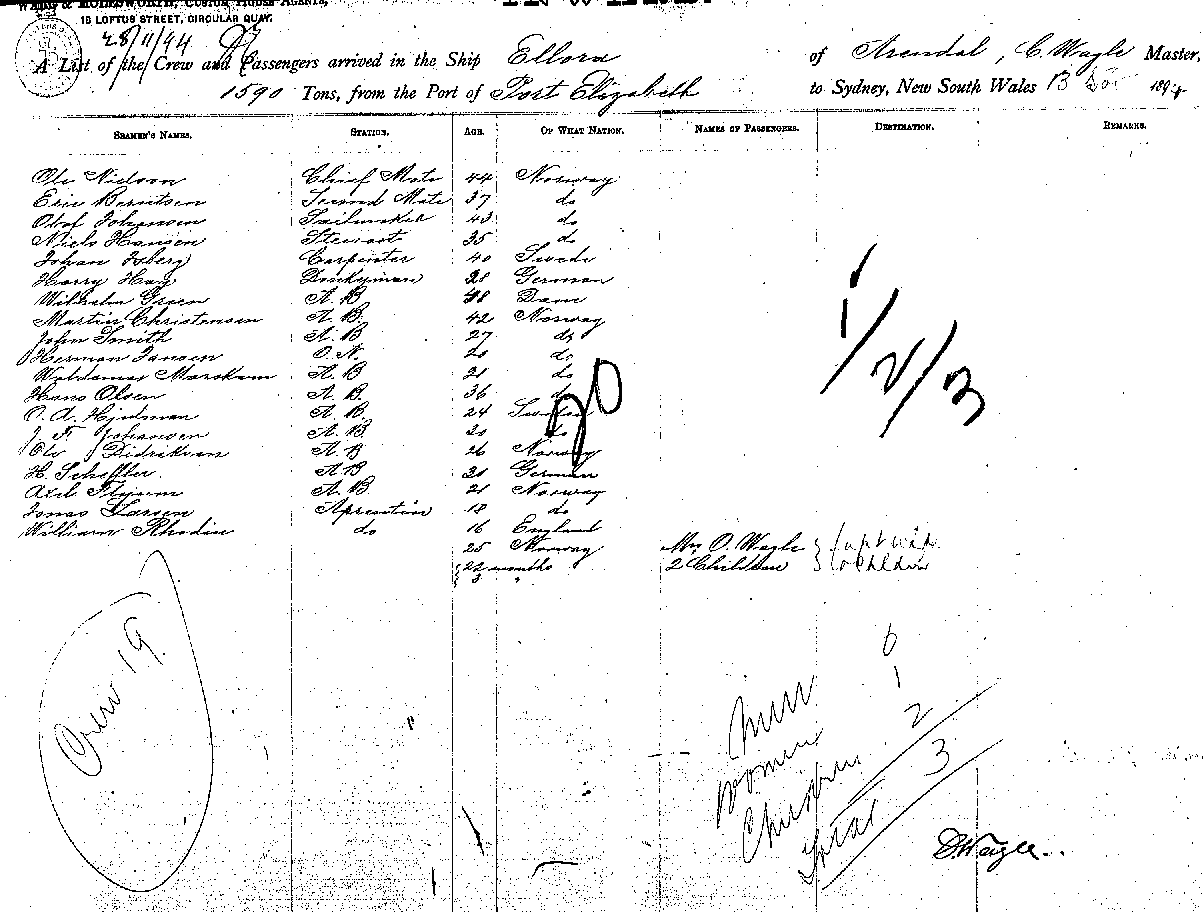 & HOLDSWORTH, CUSTOM HOUSE AGENTS,
INWARD.
15 LOFTUS STREET, CIRCULAR QUAY.
28/11/94
A List of the Crew and Passengers arrived in the Ship Ellora of Arendal, C. Wagle Master,
1590 Tons, from the Port of Port Elizabeth to Sydney, New South Wales 13 1894
SEAMEN'S NAMES. STATION. AGE. OF WHAT NATION. NAMES OF PASSENGERS. DESTINATION. REMARKS.
Ole Nielson Chief Mate 44 Norway
Eric Berntsen Second Mate 37 do
Olof Johansen Sailmaker 43 do
Niels Hansen Stewart 35 do
Johan Isberg Carpenter 40 Swede
Harry Hay Donkyman 28 German
Wilhelm Groen A. B 48 Dane
Martin Christensen A. B. 42 Norway
John Smith A. B 27 do
Herman Jansen O. N. 20 do
Waldemar Marckum A. B 21 do
Hans Olsen A. B. 36 do
O. A. Hjulman A. B. 24 Sweden
J. F. Johansen A. B. 20 do
Ole Didriksen A. B 26 Norway
H. Scheffler A. B 21 German
Axel A. B. 21 Norway
Jonas Larsen Aprentice 18 do
William Rhodin do 16 England
25 Norway Mrs O. Wagle Capt wife
22 months 2 Children & Children
3 "
20
1/2/3
Crew 19.
Men 0
Women 1
Children 2
Total 3
C. Wagle.